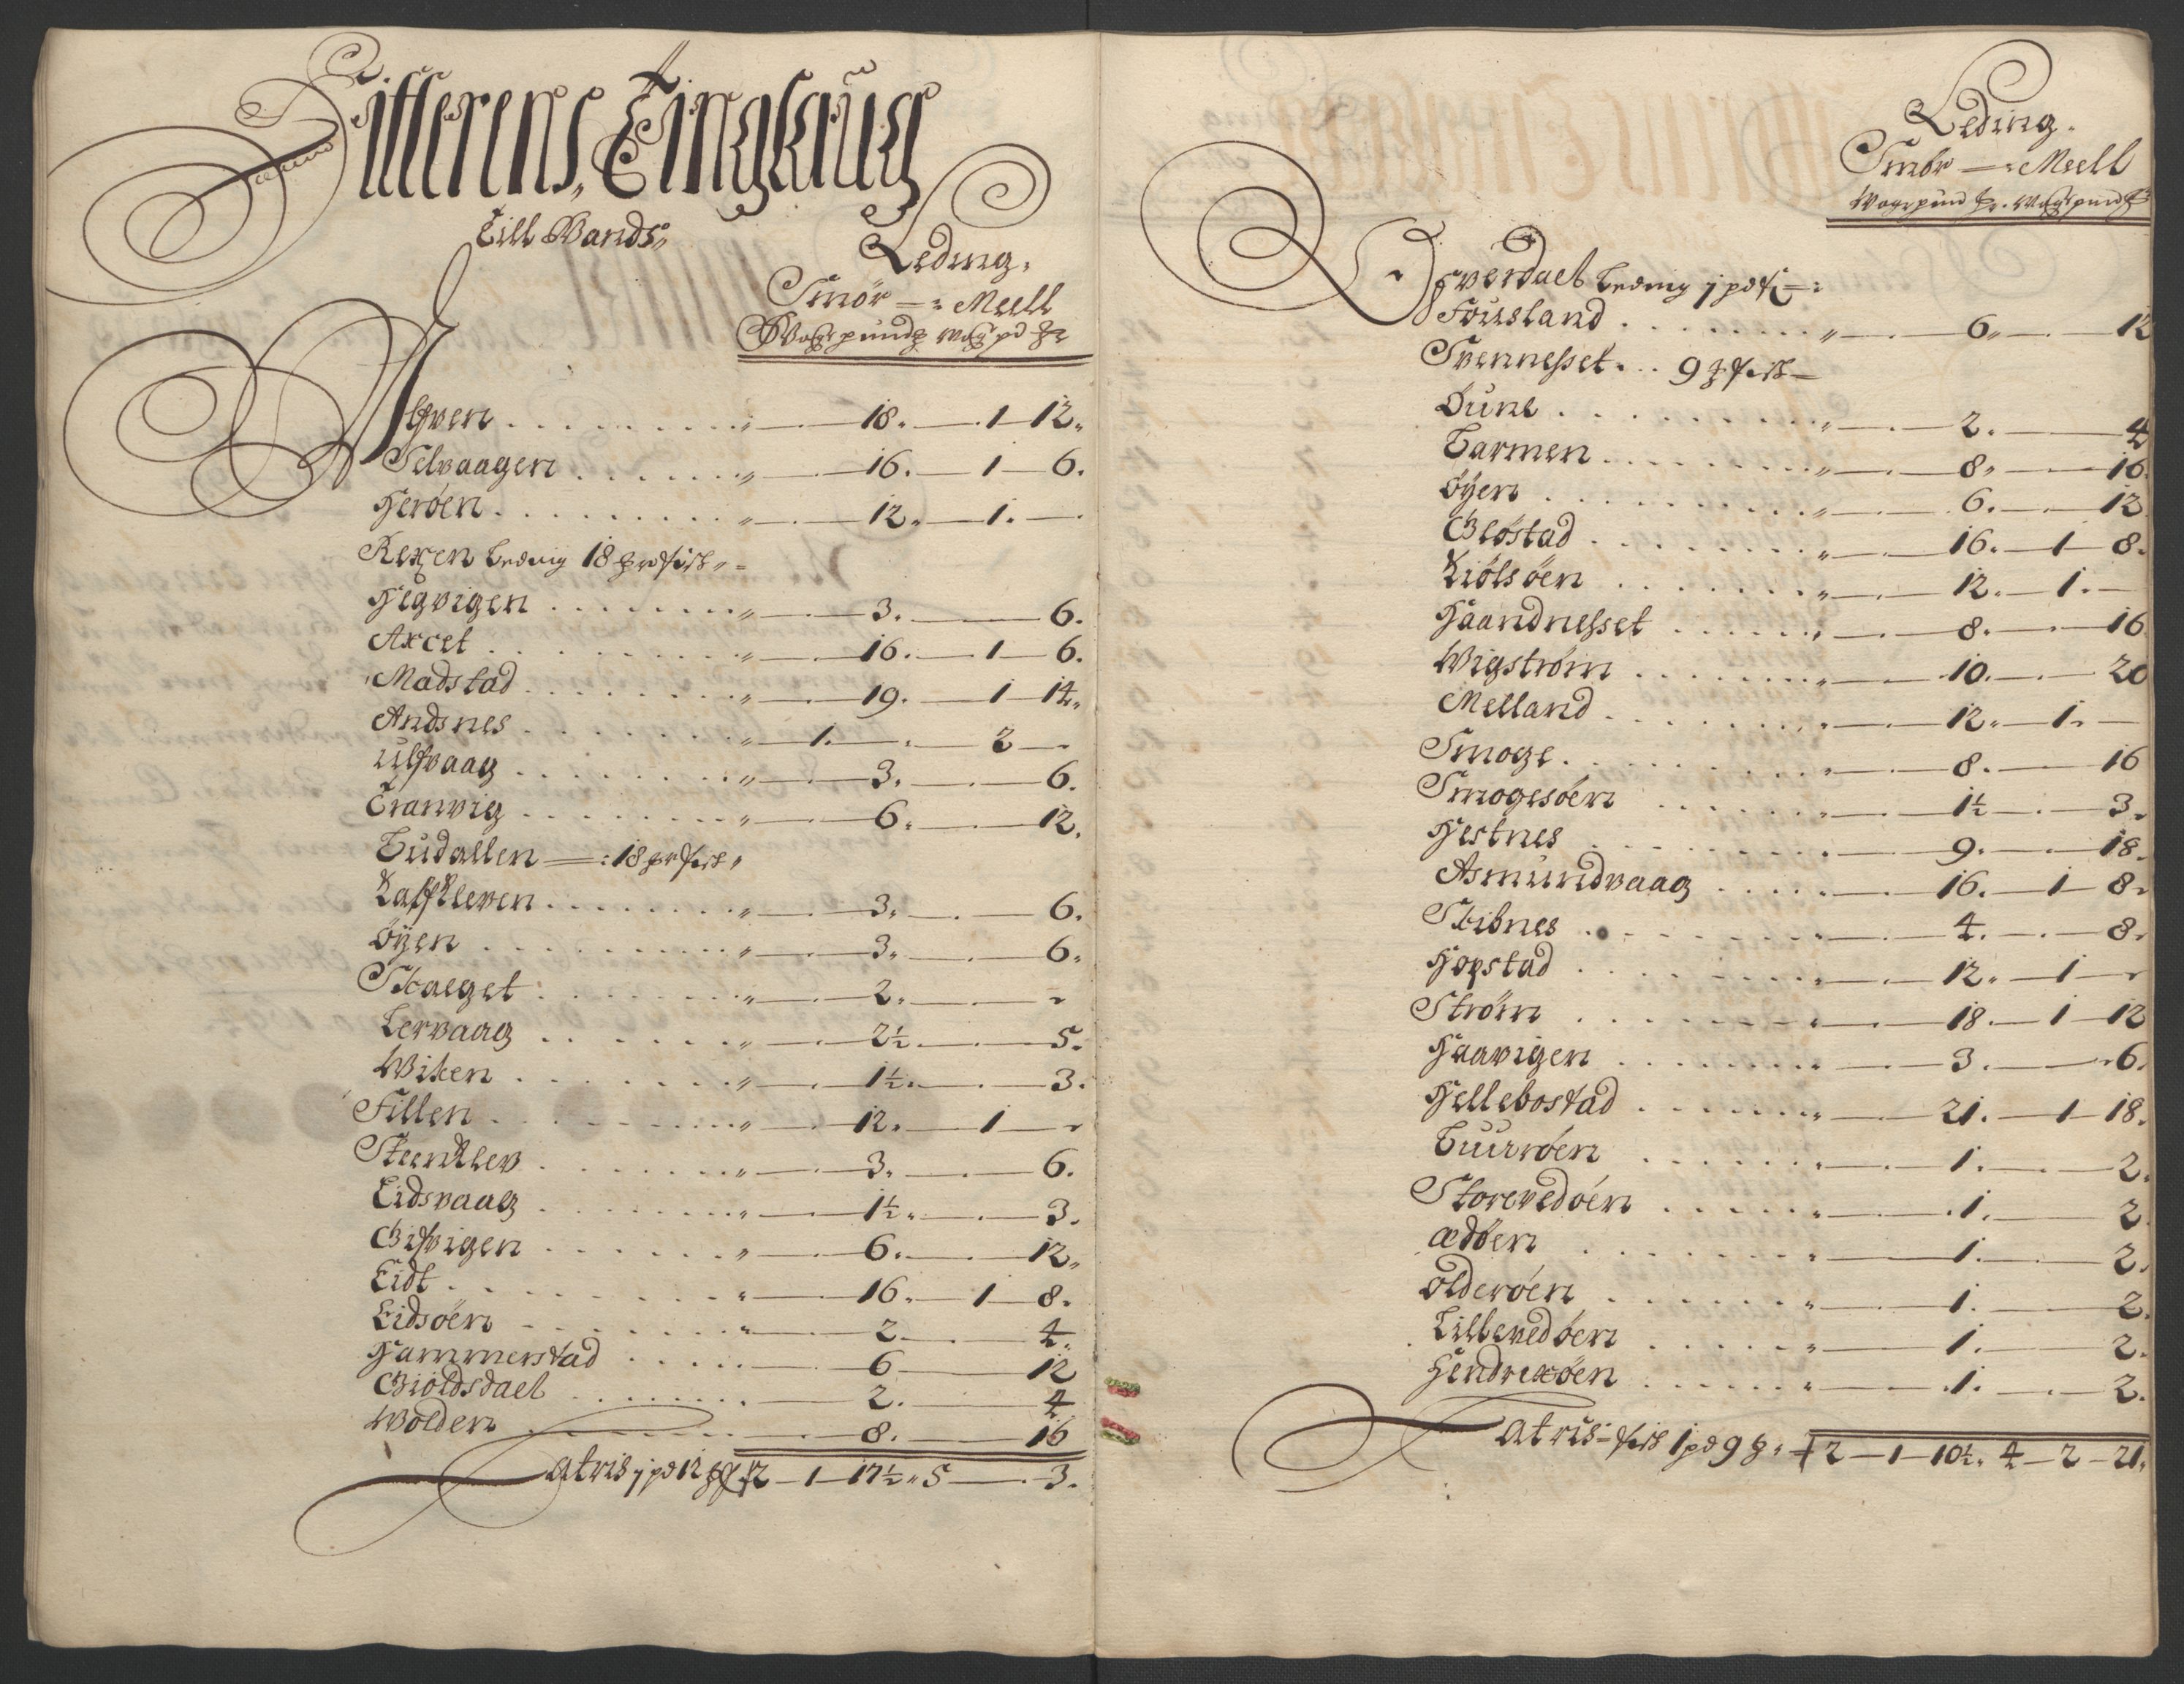 Fitterens, Tinglaug
Till Vands,,
Leding.
Smør —: Meell
Wogr pund ℔ Wog pd ℔r
Ulfven . . . . . . . . . " — . — 18. — . 1 — 12.
Selvaagen . . . . . . " — . — 16. — 1 — 6.
Herøen . . . . . . . . . " — . — 12. — 1. —
Rexen Leding 18 ℔r fisk " =
Hegvigen . . . . . . . . " — . — 3. — 6.
Axcet . . . . . . . . . . " — . — 16. — 1 — 6.
Madstad . . . . . . . . " — . — 19. — 1 — 14.
Andsnes . . . . . . . . " — 1. — . — 2 —
Ulfvaag . . . . . . . . " — . — 3. — 6.
Tranvig . . . . . . . . " — . — 6. — . — 12.
Ludallen —: 18 ℔r fisk "
Kalfkleven . . . . . . . " — . — 3. — . — 6.
Øyen . . . . . . . . . . " — . — 3. — . — 6.
Skalget . . . . . . . . " — . — 2. — . —
Lervaag . . . . . . . " — . — 2½ — . — 5.
Wiken . . . . . . . . " — . — 1½. — . — 3.
Fillen . . . . . . . . " — . — 12. — 1 —
Steenklev . . . . . . . " — . — 3. — . — 6.
Eidsvaag . . . . . . . " — . — 1½. — . — 3.
Gifvigen . . . . . . . " — . — 6. — . — 12.
Eidt . . . . . . . . . " — . — 16. — 1 — 8.
Eidsøen . . . . . . . " — . — 2. — . — 4.
Hammerstad . . . . . — . — 6 — 12
Gioldsdael . . . . . . . — 2. — 4
Wolden . . . . . . . . . — . — 8. — 16
Latris 1 pd 12 ℔ f 2 — 1 — 17½ " 5 — . — 3.
Leding.
Smør —: Meell
Wogr pund ℔r. Wog pund ℔
Qverdael Leding 1 pd f —:
Foursland . . . . . . . . . " — . — 6,, — . — 12
Svennesset . . . 9 ℔ fisk —
Dune . . . . . . . . . . " — . — 2. — 4
Barmen . . . . . . . . . " — . — 8. — . — 16.
Øyen . . . . . . . . . . " — . — 6. — . — 12
Gløstad . . . . . . . . . " — . — 16. — 1 — 8.
Kiølsøen . . . . . . . . " — . — 12. — 1. —
Haandnesset . . . . . . . " — . — 8. — . — 16.
Wigstrøm . . . . . . . . " — . — 10. — . — 20
Melland . . . . . . . . . " — . — 12. — 1. —
Smoge . . . . . . . . . . " — . — 8. — . — 16
Smogesøen . . . . . . . " — . — 1½ — . — 3.
Hestnes . . . . . . . . . " — . — 9. — . — 18.
Asmundvaag . . . . . . . — 16. — 1 — 8.
Stibnes . . . . . . . . " — . — 4. — . — 8.
Hopstad . . . . . . . . . " — . — 12. — 1 —
Strøm . . . . . . . . . " — . — 18. — 1 — 12
Haavigen . . . . . . . . " — . — 3. — . 6.
Hellebostad . . . . . . . " — . — 21. — 1 — 18.
Buurøen . . . . . . . . " — . — 1. — . — 2.
Storevedøen . . . . . . " — . — 1. — 2.
Ædøen . . . . . . . . . " — . — 1. — . — 2.
Olderøen . . . . . . . . " — . — 1. — 2.
Lillevedøen . . . . . . " — . — 1. — . — 2.
Hendrexøen . . . . . . " — . — 1. — . — 2.
Latris — fisk 1 pd 9 ℔. 2 — 1 — 10½. 4 — 2 — 21.